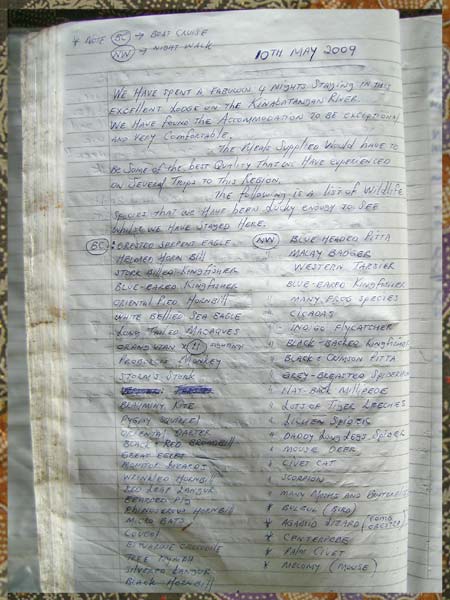 * NOTE (BC) → BOAT CRUISE
(NW) → NIGHT WALK
10TH MAY 2009
WE HAVE SPENT A FABULOUS 4 NIGHTS STAYING IN THIS
EXCELLENT LODGE ON THE KINABATANGAN RIVER.
WE HAVE FOUND THE ACCOMMODATION TO BE EXCEPTIONAL
AND VERY COMFORTABLE.
THE MEALS SUPPLIED WOULD HAVE TO
BE SOME OF THE BEST QUALITY THAT WE HAVE EXPERIENCED
ON SEVERAL TRIPS TO THIS REGION.
THE FOLLOWING IS A LIST OF WILDLIFE
SPECIES THAT WE HAVE BEEN LUCKY ENOUGH TO SEE
WHILST WE HAVE STAYED HERE.
(BC): CRESTED SERPENT EAGLE
HELMED HORN BILL
STORK BILLED KINGFISHER
BLUE-EARED KINGFISHER
ORIENTAL PIED HORNBILL
WHITE BELLIED SEA EAGLE
LONG TAILED MACAQUES
ORANG UTAN x 11
PROBOSCIS MONKEY
STORM'S STORK
BRAHMINY KITE
PYGMY SQUIRREL
ORIENTAL DARTER
BLACK & RED BROADBILL
GREAT EGRET
MONITOR LIZARDS
WRINKLED HORNBILL
RED LEAF LANGUR
BEARDED PIG
RHINOCEROUS HORNBILL
MICRO BATS
COUCAL
ESTUARINE CROCODILE
TREE NYMPH
SILVERED LANGUR
BLACK HORNBILL
(NW) BLUE HEADED PITTA
" MALAY BADGER
WESTERN TARSIER
BLUE-EARED KINGFISHER
" MANY FROG SPECIES
" CICADAS
- INDIGO FLYCATCHER
" BLACK-BACKED KINGFISHER
" BLACK & CRIMSON PITTA
" GREY-BREASTED SPIDERHUNTER
" FLAT-BACK MILLIPEDE
" LOTS OF TIGER LEECHES
" LICHEN SPIDER
" DADDY LONG LEGS SPIDER
" MOUSE DEER
" CIVET CAT
" SCORPION
" MANY MOTHS AND BUTTERFLIES
* BULBUL (BIRD)
* AGAMID LIZARD (COMB CRESTED)
* CENTERPEDE
* PALM CIVET
* MELOMY (MOUSE)